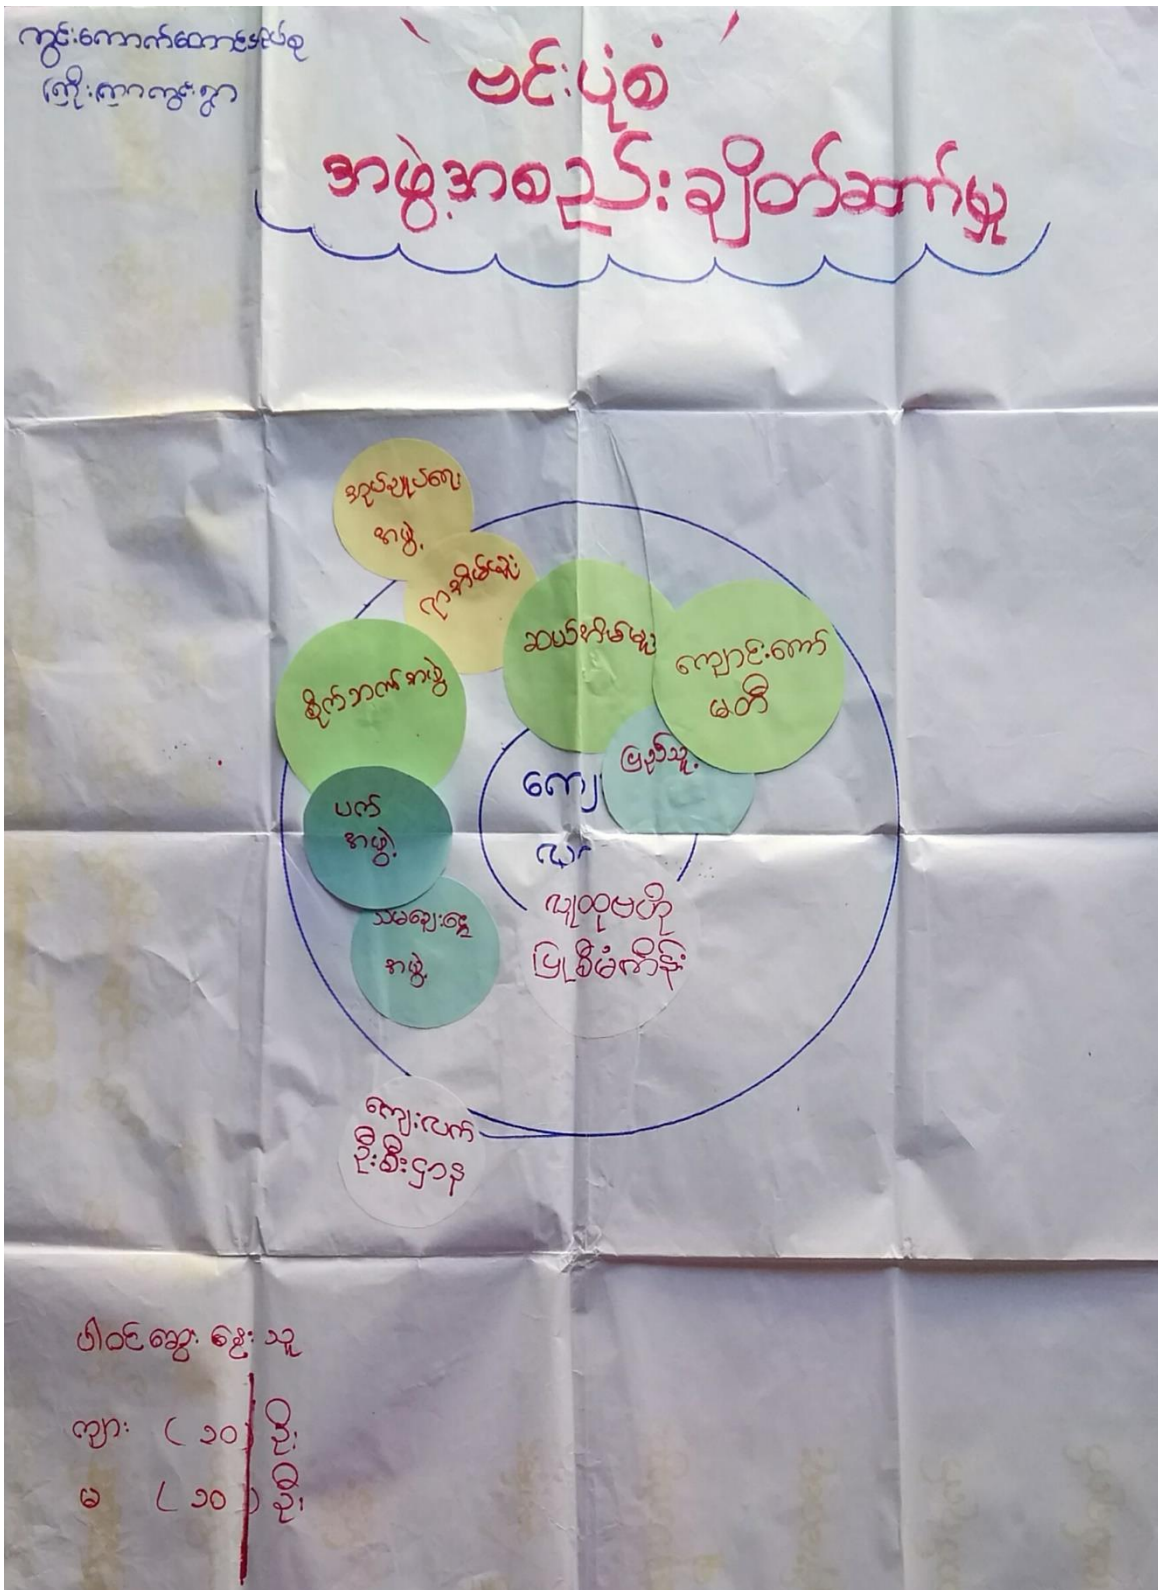 ကွင်းကောက်တောင်အုပ်စု
ကြိုးကြာကွင်းရွာ
ဗင်းပုံစံ
အဖွဲ့အစည်းချိတ်ဆက်မှု
အုပ်ချုပ်ရေး
အဖွဲ့
ရာအိမ်မှူး
ဆယ်အိမ်မှူး
ကျောင်းတော်
မတီ
စိုက်ဘက်အဖွဲ့
ပြည်သူ့
ကျေ
လ
ပက်
အဖွဲ့
သမချေးငွေ
အဖွဲ့
လူထုဗဟို
ပြုစီမံကိန်း
ကျေးလက်
ဦးစီးဌာန
ပါဝင်ဆွေးနွေးသူ
ကျား (၁၀) ဦး
မ (၁၀) ဦး